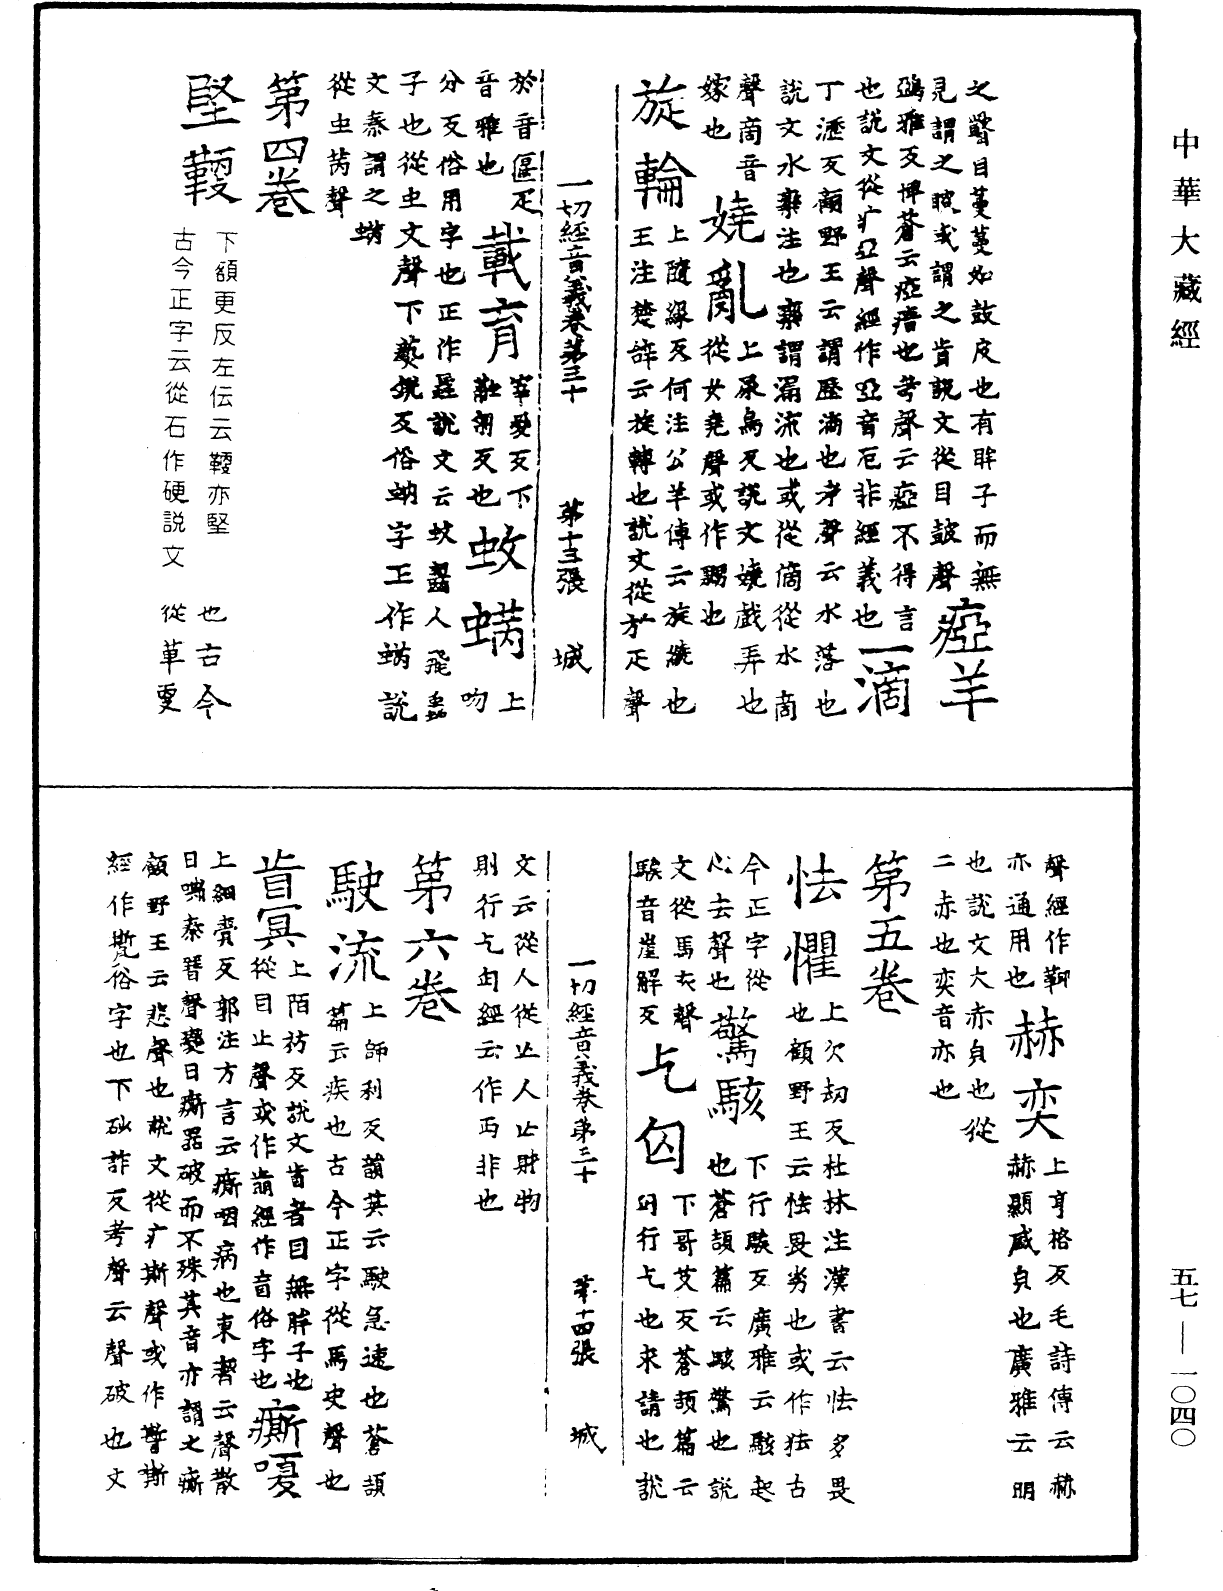 中華大藏經
之瞖目蔓蔓如鼓皮也有眸子而無
見謂之䁾或謂之盲說文從目鼓聲
瘂羊
鵶雅反埤蒼云瘂瘖也考聲云瘂不得言
也說文從疒亞聲經作啞音厄非經義也
一滴
丁瀝反顧野王云謂瀝滴也考聲云水落也
說文水欒注也欒謂漏流也或從啇從水商
聲啇音
嫁也
嬈亂
上尿鳥反說文嬈戲弄也
從女堯聲或作嬲也
旋輪
上隨緣反何注公羊傳云旋繞也
王注楚辭云旋轉也說文從㫃疋聲
一切經音義卷第三十 第十三張 城
於音偃疋
音雅也
載育
宰愛反下
融匊反也
蚊蟎
上
吻
分反俗用字也正作蟁說文云蚊齧人飛蟲
子也從虫文聲下爇銳反俗蚋字正作蟎說
文秦謂之蟎
從虫芮聲
第四卷
堅鞕
下額更反左伝云鞕亦堅也古今
古今正字云從石作硬說文從革更
聲經作鞕
亦通用也
赫奕
上亨格反毛詩傳云赫
赫顯威皃也廣雅云明
也說文大赤皃也從
二赤也奕音亦也
第五卷
怯懼
上欠刧反杜林注漢書云怯多畏
也顧野王云怯畏劣也或作㹤古
今正字從
心去聲也
驚駭
下行騃反廣雅云駭起
也蒼頡篇云駭驚也說
文從馬亥聲
騃音崖解反
乞匃
下哥艾反蒼頡篇云
匃行乞也求請也說
一切經音義卷第三十 第十四張 城
文云從人從亾人亾財物
則行乞匃經云作丐非也
第六卷
駛流
上師利反韻英云駛急速也蒼頡
篇云疾也古今正字從馬史聲也
盲冥
上陌彷反說文盲者目無眸子也
從目亡聲或作萠經作盲俗字也
㾷嗄
上細賷反郭注方言云㾷咽病也東齊云聲散
曰嘶秦晉聲變曰㾷器破而不殊其音亦謂之㾷
顧野王云悲聲也說文從疒斯聲或作誓
經作嘶俗字也下砂詐反考聲云聲破也文
五七—一〇四〇